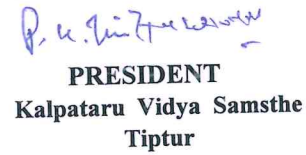 PRESIDENT
Kalpataru Vidya Samsthe
Tiptur